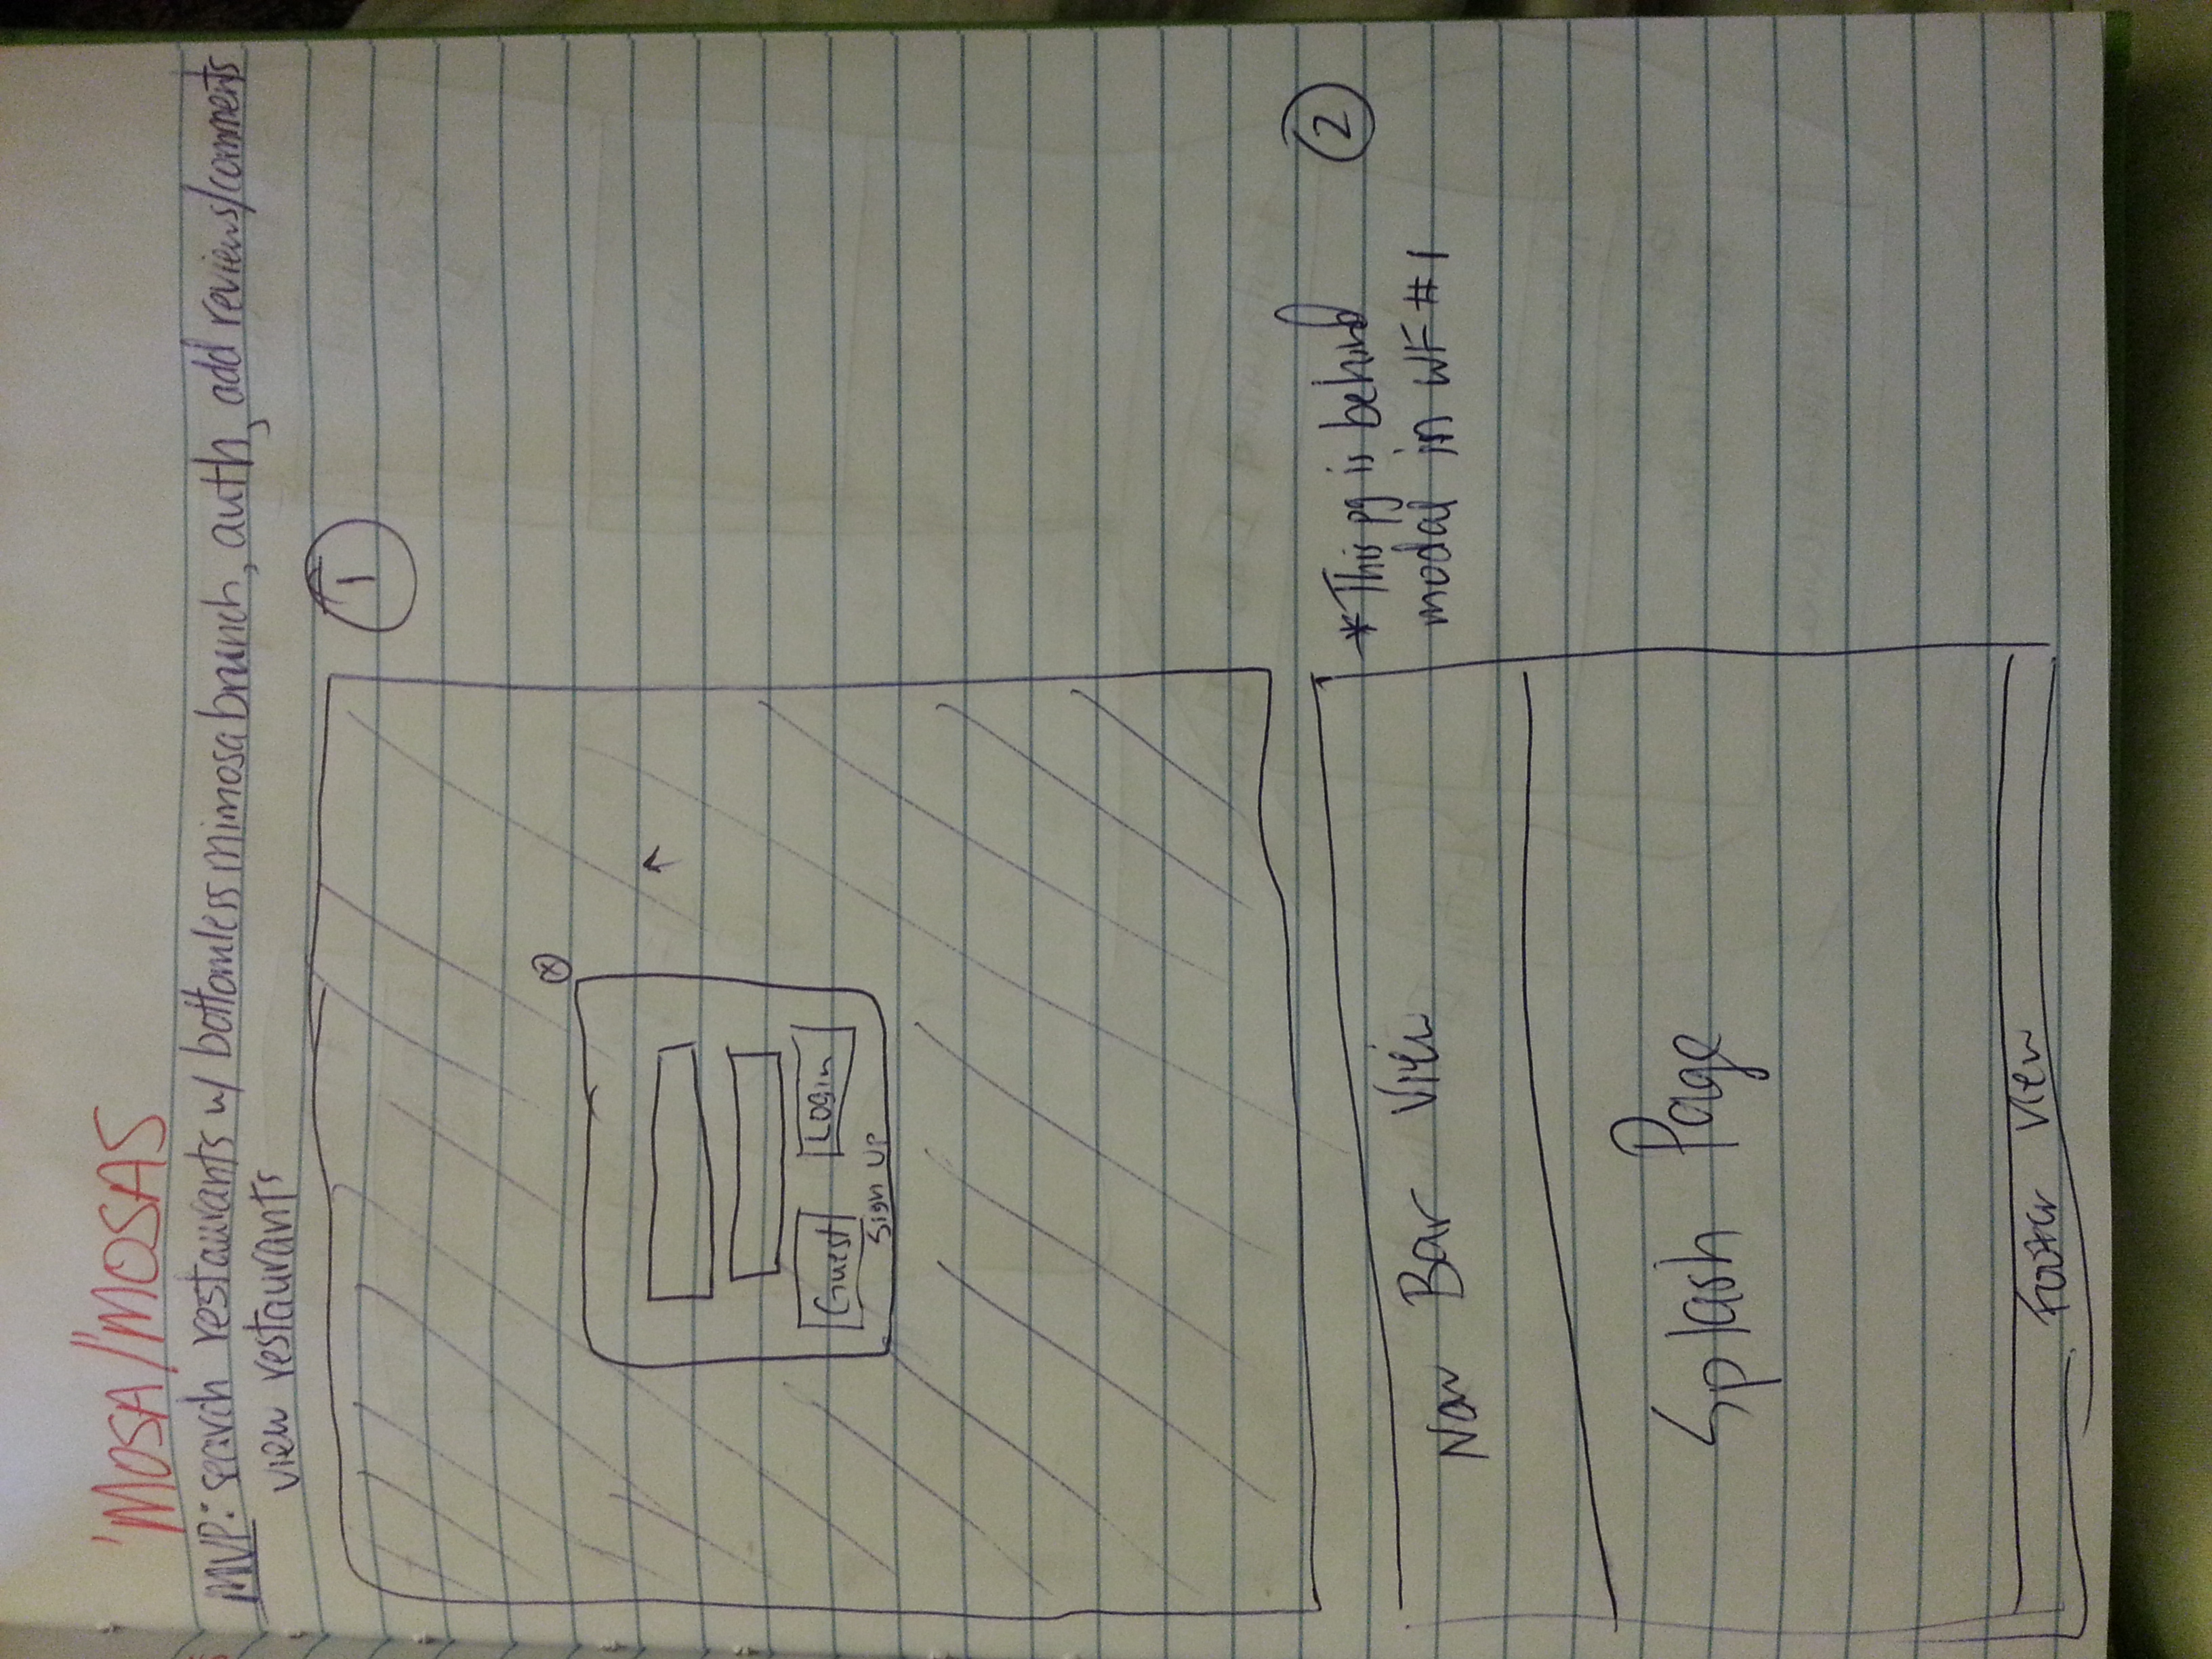 'MOSA/'MOSAS
MVP: search restaurants w/ bottomless mimosa brunch, auth, add reviews/comments
view restaurants
1
X
Guest
Login
Sign Up
2
*This pg is behind
modal in WF #1
Nav Bar View
Splash Page
Footer View